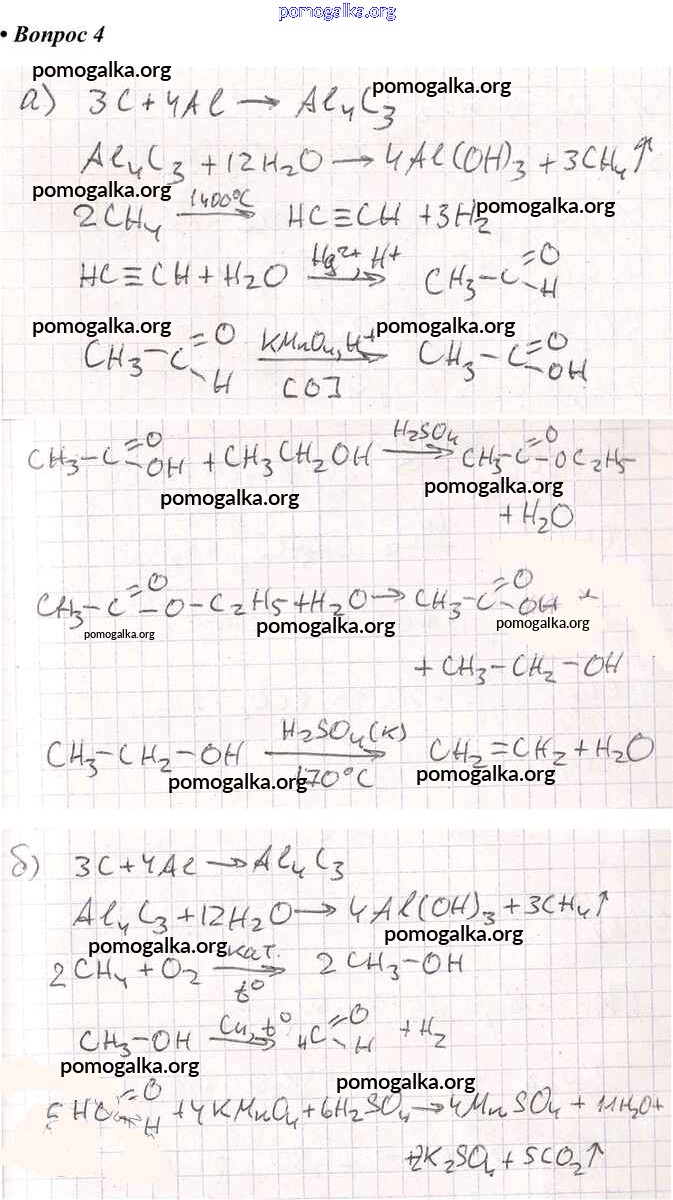 pomogalka.org
• Вопрос 4
pomogalka.org
pomogalka.org
а) 3C + 4Al → Al₄C₃
Al₄C₃ + 12H₂O → 4Al(OH)₃ + 3CH₄↑
pomogalka.org
pomogalka.org
2CH₄ 1400°C → HC≡CH + 3H₂
HC≡CH + H₂O Hg²⁺, H⁺ → CH₃-C=O -H
pomogalka.org
pomogalka.org
CH₃-C=O -H KMnO₄, H⁺ [O] → CH₃-C=O -OH
CH₃-C=O -OH + CH₃CH₂OH H₂SO₄ → CH₃-C=O -OC₂H₅
pomogalka.org
pomogalka.org
+ H₂O
CH₃-C=O -O-C₂H₅ + H₂O → CH₃-C=O -OH +
pomogalka.org
pomogalka.org
pomogalka.org
+ CH₃-CH₂-OH
CH₃-CH₂-OH H₂SO₄(к) 170°C → CH₂=CH₂ + H₂O
pomogalka.org
pomogalka.org
б) 3C + 4Al → Al₄C₃
Al₄C₃ + 12H₂O → 4Al(OH)₃ + 3CH₄↑
pomogalka.org
pomogalka.org
2CH₄ + O₂ кат. t° → 2CH₃-OH
CH₃-OH Cu, t° → HC=O -H + H₂
pomogalka.org
pomogalka.org
5HC=O -H + 4KMnO₄ + 6H₂SO₄ → 4MnSO₄ + 11H₂O +
+2K₂SO₄ + 5CO₂↑